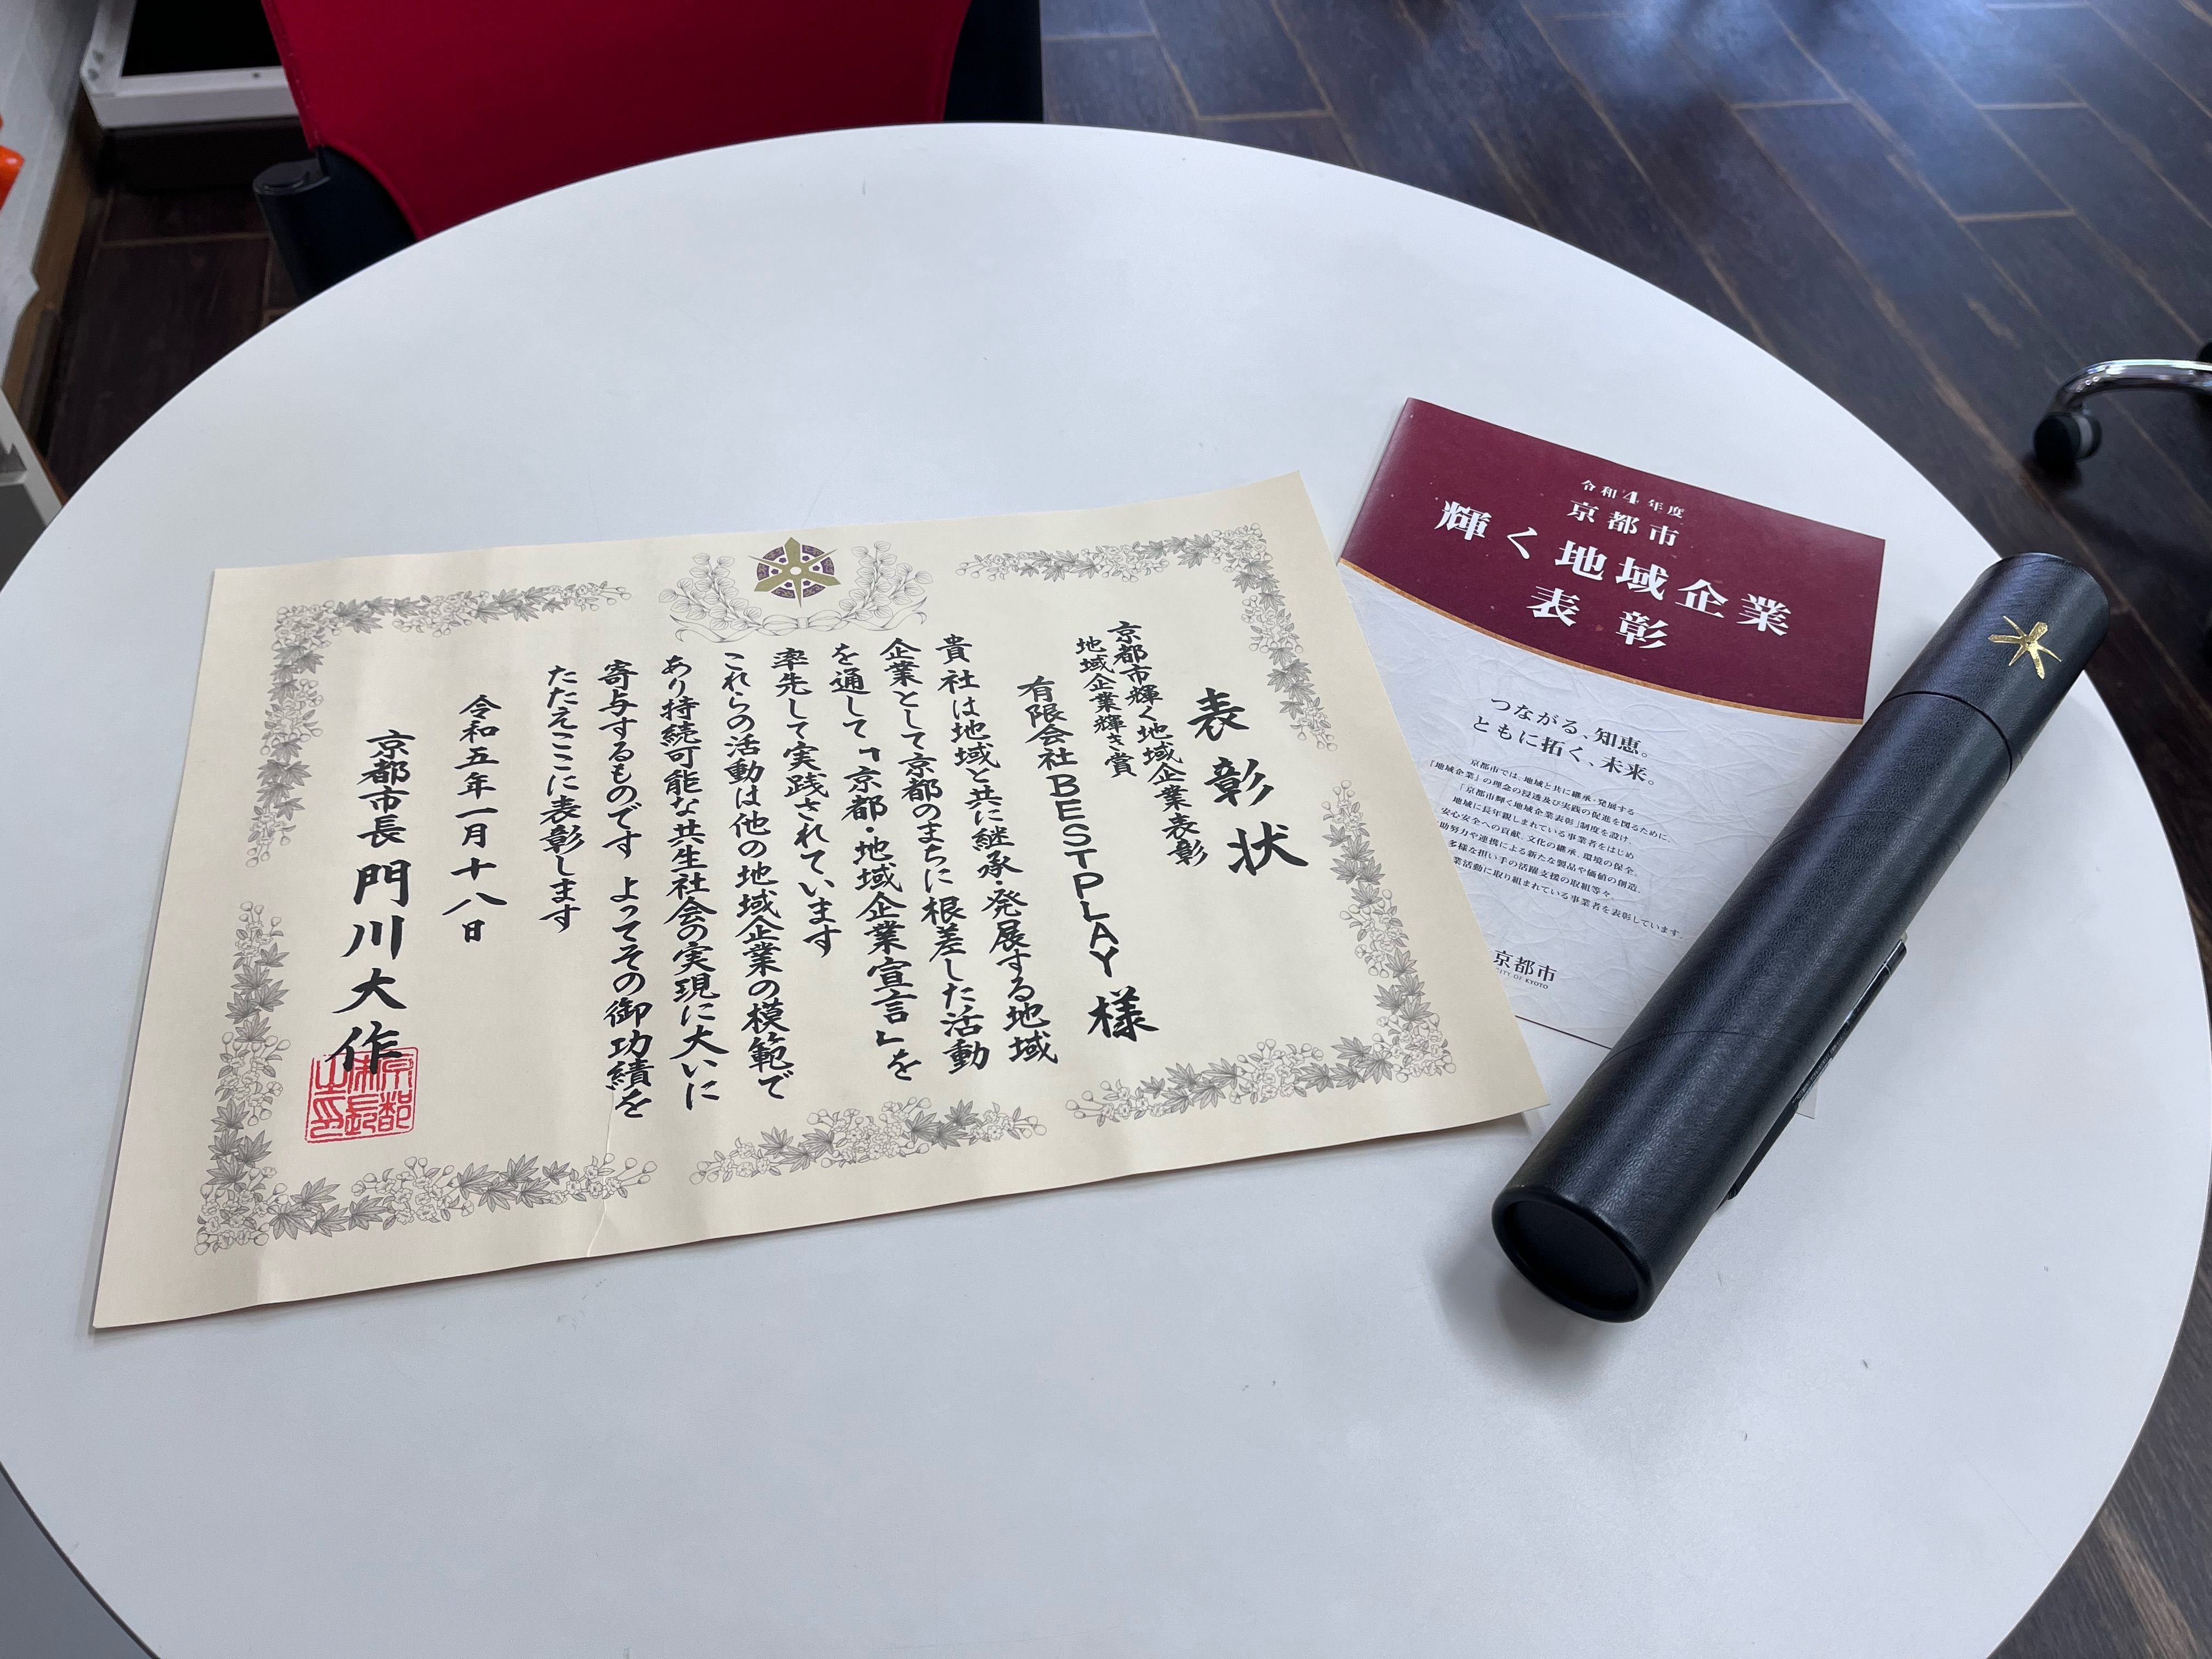 表彰状
京都市輝く地域企業表彰
地域企業輝き賞
有限会社BESTPLAY 様
貴社は地域と共に継承・発展する地域
企業として京都のまちに根差した活動
を通して「京都・地域企業宣言」を
率先して実践されています
これらの活動は他の地域企業の模範で
あり持続可能な共生社会の実現に大いに
寄与するものです よってその御功績を
たたえここに表彰します
令和五年一月十八日
京都市長 門川大作
京都市長之印
令和4年度
京都市
輝く地域企業
表彰
つながる、知恵。
ともに拓く、未来。
京都市では、地域と共に継承・発展する
「地域企業」の理念の浸透及び実践の促進を図るために、
「京都市輝く地域企業表彰」制度を設け、
地域に長年親しまれている事業者をはじめ
安心安全への貢献、文化の継承、環境の保全、
助努力や連携による新たな製品や価値の創造、
多様な担い手の活躍支援の取組等々
業活動に取り組まれている事業者を表彰しています。
京都市
CITY OF KYOTO